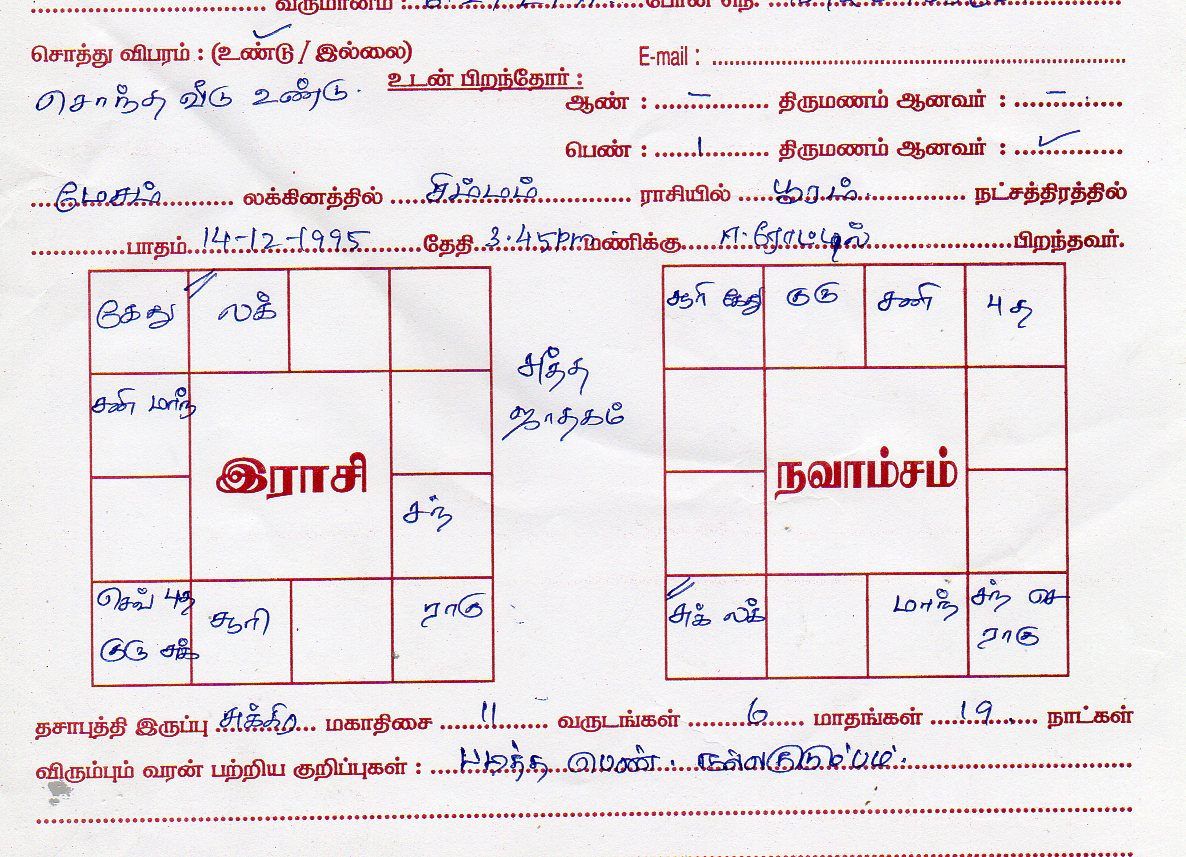 வருமானம் : போன் எண்.
சொத்து விபரம் : (உண்டு / இல்லை) E-mail :
உடன் பிறந்தோர் :
சொந்த வீடு உண்டு. ஆண் : – திருமணம் ஆனவர் : –
பெண் : 1 திருமணம் ஆனவர் : ✓
மேசம் லக்கினத்தில் சிம்மம் ராசியில் பூரம் நட்சத்திரத்தில்
பாதம் 14-12-1995 தேதி 3.45pm மணிக்கு ஈரோட்டில் பிறந்தவர்.
கேது லக்
சூரி கேது குரு சனி 4த
சுத்த
ஜாதகம்
சனி மாந்
இராசி
நவாம்சம்
சந்
செவ் 4த
குரு சுக்
சூரி
ராகு
சுக் லக் மாந் சந் செ
ராகு
தசாபுத்தி இருப்பு சுக்கிர மகாதிசை 11 வருடங்கள் 6 மாதங்கள் 19 நாட்கள்
விரும்பும் வரன் பற்றிய குறிப்புகள் : படித்த பெண். நல்லகுடும்பம்.